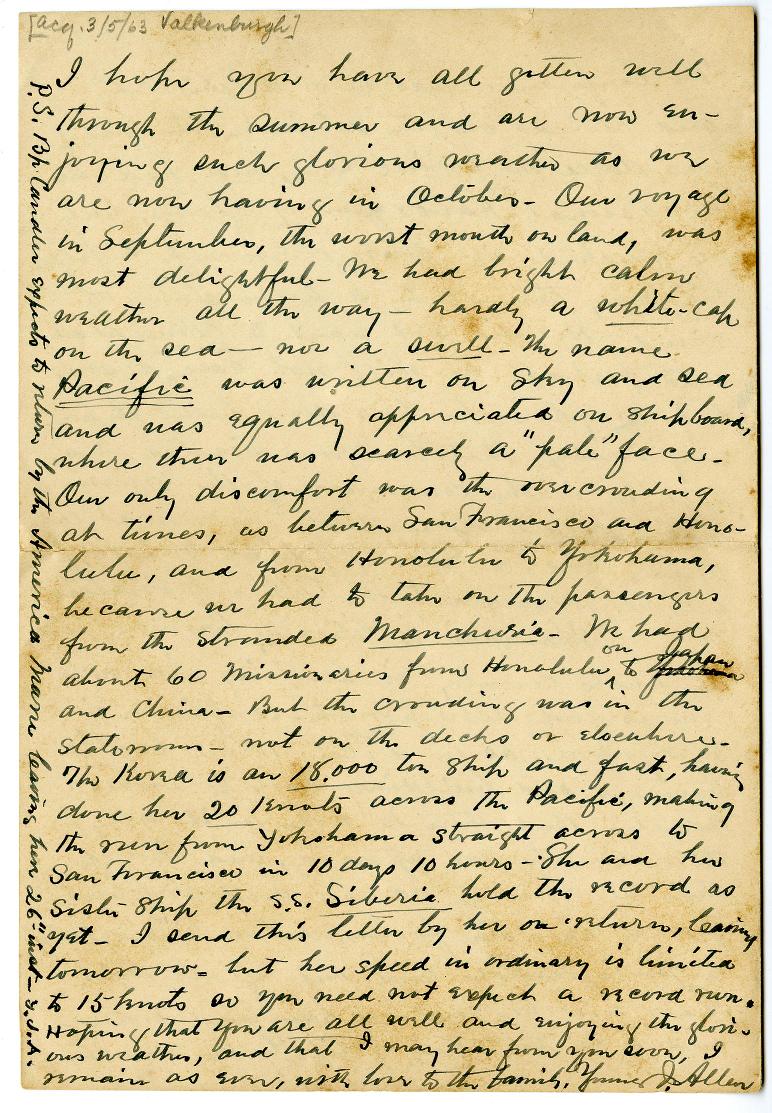 [acq. 3/5/63 Valkenburgh]
I hope you have all gotten well
through the summer and are now en-
joying such glorious weather as we
are now having in October - Our voyage
in September, the worst month on land, was
most delightful - We had bright calm
weather all the way - hardly a white-cap
on the sea - nor a swell - The name
Pacific was written on sky and sea
and was equally appreciated on shipboard,
where there was scarcely a "pale" face -
Our only discomfort was the overcrowding
at times, as between San Francisco and Hono-
lulu, and from Honolulu to Yokohama,
because we had to take on the passengers
from the stranded Manchuria - We had
about 60 Missionaries from Honolulu, on to Japan
and China - But the crowding was in the
staterooms - not on the decks or elsewhere -
The Korea is an 18,000 ton ship and fast, having
done her 20 Knots across the Pacific, making
the run from Yokohama straight across to
San Francisco in 10 days 10 hours - She and her
sister ship the S.S. Siberia hold the record as
yet - I send this letter by her on return, leaving
tomorrow - but her speed in ordinary is limited
to 15 knots so you need not expect a record run.
Hoping that you are all well and enjoying the glori-
ous weather, and that I may hear from you soon, I
remain as ever, with love to the family, Yours J. Allen
P.S. Bp Candler expects to return by the America Maru leaving here 26" inst - Y.J.A.